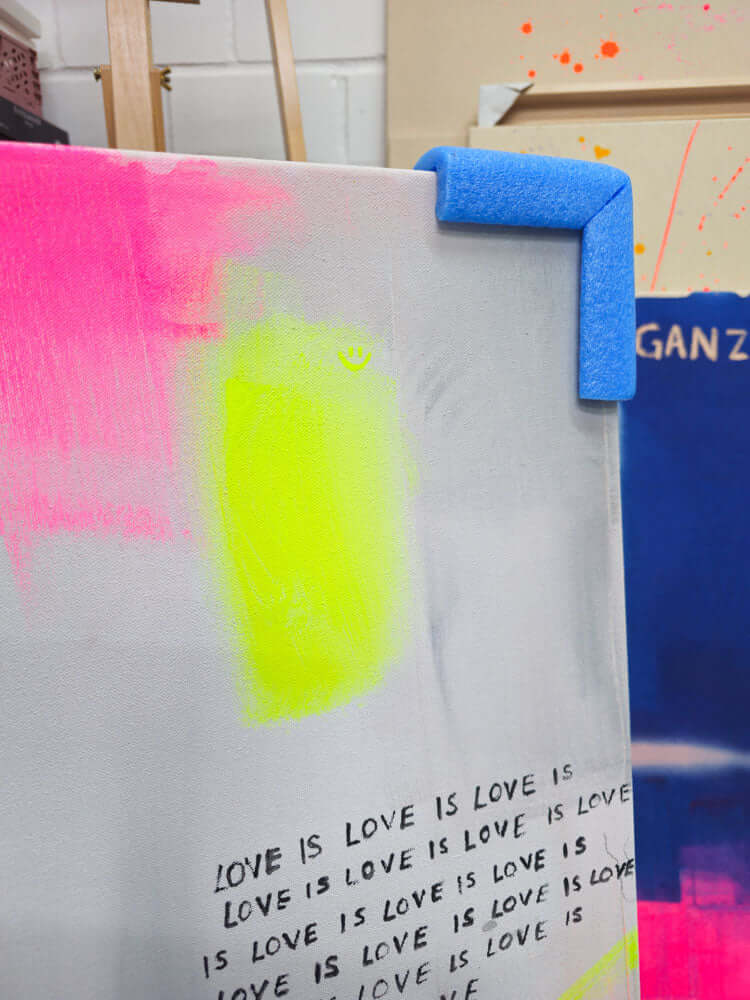 GANZ
LOVE IS LOVE IS LOVE IS
LOVE IS LOVE IS LOVE IS LOVE
IS LOVE IS LOVE IS LOVE IS
LOVE IS LOVE IS LOVE IS LOVE
LOVE IS LOVE IS